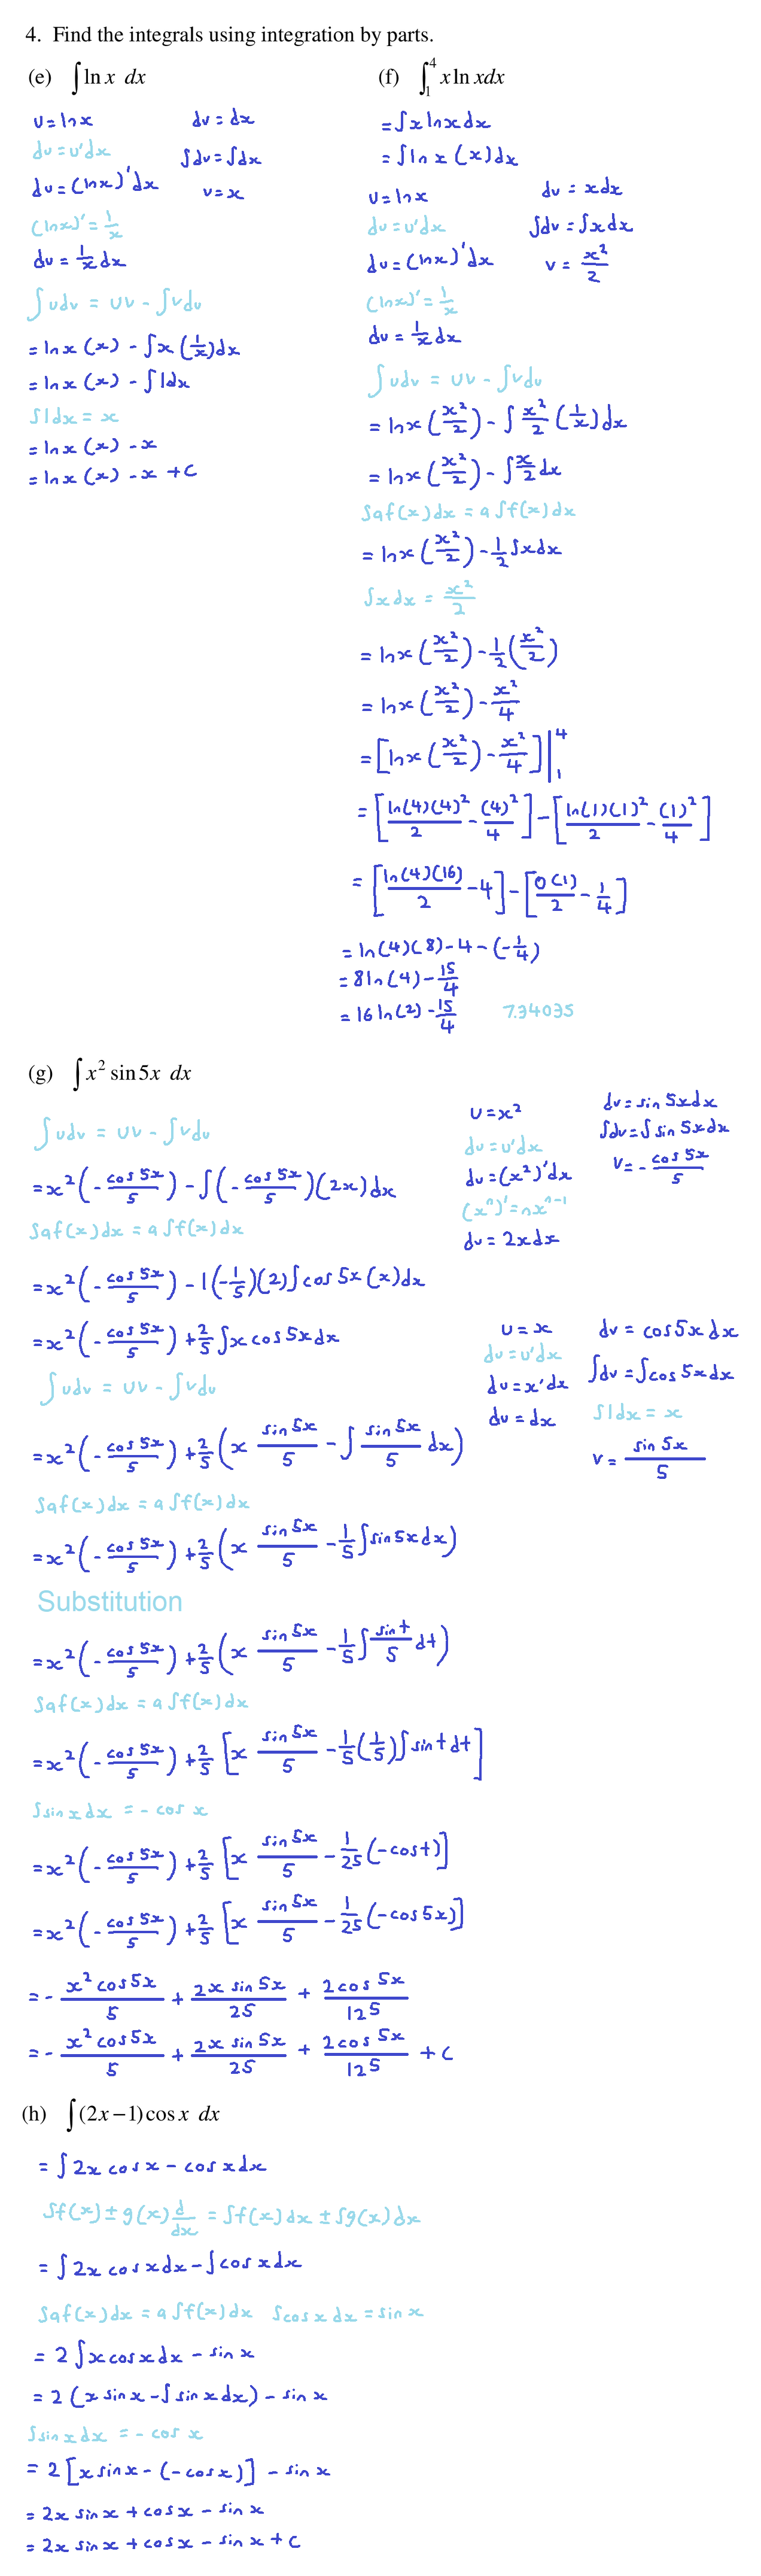 4. Find the integrals using integration by parts.
(e) ∫ ln x dx
u = ln x    dv = dx
du = u'dx    ∫dv = ∫dx
du = (ln x)'dx    v = x
(ln x)' = 1/x
du = 1/x dx
∫udv = uv - ∫vdu
= ln x (x) - ∫x (1/x)dx
= ln x (x) - ∫1dx
∫1dx = x
= ln x (x) - x
= ln x (x) - x + C
(f) ∫₁⁴ x ln xdx
= ∫x ln x dx
= ∫ln x (x)dx
u = ln x    dv = xdx
du = u'dx    ∫dv = ∫xdx
du = (ln x)'dx    v = x²/2
(ln x)' = 1/x
du = 1/x dx
∫udv = uv - ∫vdu
= ln x (x²/2) - ∫ x²/2 (1/x)dx
= ln x (x²/2) - ∫x/2 dx
∫af(x)dx = a∫f(x)dx
= ln x (x²/2) - 1/2 ∫xdx
∫xdx = x²/2
= ln x (x²/2) - 1/2 (x²/2)
= ln x (x²/2) - x²/4
= [ln x (x²/2) - x²/4]|₁⁴
= [ln(4)(4)²/2 - (4)²/4] - [ln(1)(1)²/2 - (1)²/4]
= [ln(4)(16)/2 - 4] - [0(1)/2 - 1/4]
= ln(4)(8) - 4 - (-1/4)
= 8ln(4) - 15/4
= 16ln(2) - 15/4    7.34035
(g) ∫ x² sin 5x dx
u = x²    dv = sin 5xdx
du = u'dx    ∫dv = ∫sin 5xdx
du = (x²)'dx    v = - cos 5x/5
(xⁿ)' = nxⁿ⁻¹
du = 2xdx
∫udv = uv - ∫vdu
= x²(- cos 5x/5) - ∫(- cos 5x/5)(2x)dx
∫af(x)dx = a∫f(x)dx
= x²(- cos 5x/5) - 1(-1/5)(2)∫cos 5x (x)dx
= x²(- cos 5x/5) + 2/5 ∫x cos 5xdx
u = x    dv = cos 5x dx
du = u'dx    ∫dv = ∫cos 5xdx
du = x'dx    ∫1dx = x
du = dx    v = sin 5x/5
∫udv = uv - ∫vdu
= x²(- cos 5x/5) + 2/5 (x sin 5x/5 - ∫ sin 5x/5 dx)
∫af(x)dx = a∫f(x)dx
= x²(- cos 5x/5) + 2/5 (x sin 5x/5 - 1/5 ∫sin 5xdx)
Substitution
= x²(- cos 5x/5) + 2/5 (x sin 5x/5 - 1/5 ∫ sin t/5 dt)
∫af(x)dx = a∫f(x)dx
= x²(- cos 5x/5) + 2/5 [x sin 5x/5 - 1/5 (1/5)∫sin t dt]
∫sin xdx = - cos x
= x²(- cos 5x/5) + 2/5 [x sin 5x/5 - 1/25 (-cos t)]
= x²(- cos 5x/5) + 2/5 [x sin 5x/5 - 1/25 (-cos 5x)]
= - x² cos 5x/5 + 2x sin 5x/25 + 2cos 5x/125
= - x² cos 5x/5 + 2x sin 5x/25 + 2cos 5x/125 + C
(h) ∫ (2x − 1) cos x dx
= ∫ 2x cos x - cos xdx
∫f(x) ± g(x) d/dx = ∫f(x)dx ± ∫g(x)dx
= ∫ 2x cos xdx - ∫cos xdx
∫af(x)dx = a∫f(x)dx    ∫cos xdx = sin x
= 2 ∫xcos xdx - sin x
= 2 (x sin x - ∫ sin xdx) - sin x
∫sin xdx = - cos x
= 2 [x sin x - (-cos x)] - sin x
= 2x sin x + cos x - sin x
= 2x sin x + cos x - sin x + C